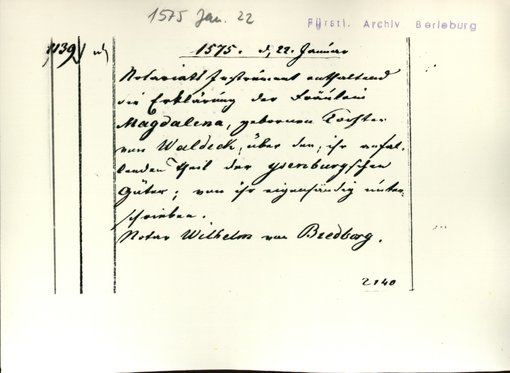 1575 Jan. 22
Fürstl. Archiv Berleburg
1139
1575. d. 22. Januar
Notariats Instrument enthaltend
die Erklärung der Fräulein
Magdalena, gebornen Tochter
von Waldeck, über den, ihr anfal-
lenden Theil der ysenburgschen
Güter; von ihr eigenhändig unter-
schrieben.
Notar Wilhelm von Bredbarg.
2140